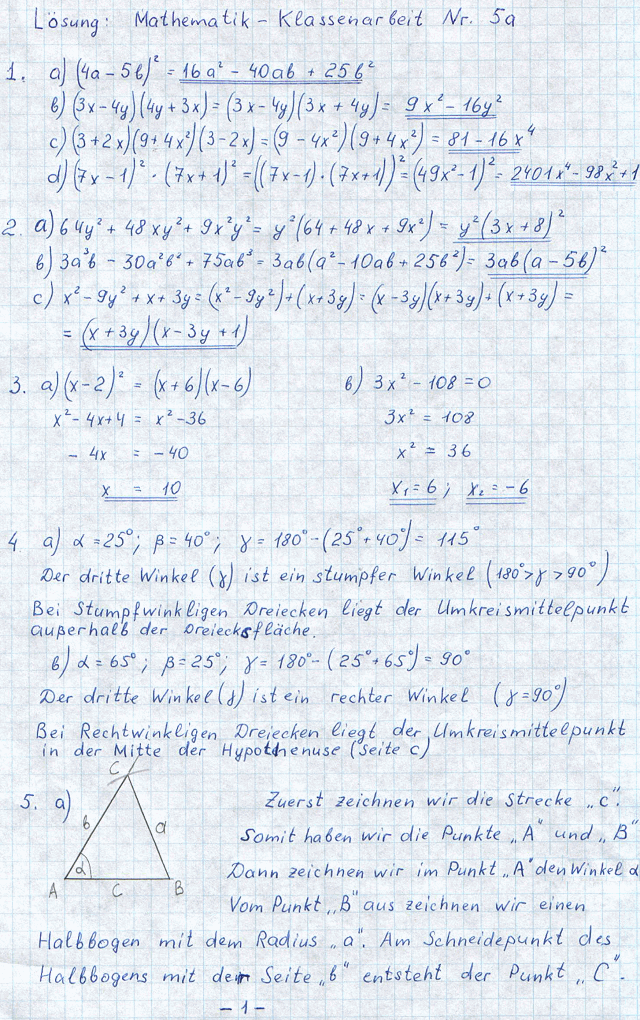 Lösung: Mathematik - Klassenarbeit Nr. 5a
1. a) (4a - 5b)² = 16a² - 40ab + 25b²
b) (3x - 4y)(4y + 3x) = (3x - 4y)(3x + 4y) = 9x² - 16y²
c) (3 + 2x)(9 + 4x²)(3 - 2x) = (9 - 4x²)(9 + 4x²) = 81 - 16x⁴
d) (7x - 1)² · (7x + 1)² = ((7x - 1) · (7x + 1))² = (49x² - 1)² = 2401x⁴ - 98x² + 1
2. a) 64y² + 48xy² + 9x²y² = y²(64 + 48x + 9x²) = y²(3x + 8)²
b) 3a³b - 30a²b² + 75ab³ = 3ab(a² - 10ab + 25b²) = 3ab(a - 5b)²
c) x² - 9y² + x + 3y = (x² - 9y²) + (x + 3y) = (x - 3y)(x + 3y) + (x + 3y) =
= (x + 3y)(x - 3y + 1)
3. a) (x - 2)² = (x + 6)(x - 6) b) 3x² - 108 = 0
x² - 4x + 4 = x² - 36 3x² = 108
- 4x = - 40 x² = 36
x = 10 x₁ = 6 ; x₂ = - 6
4 a) α = 25°; β = 40°; γ = 180° - (25° + 40°) = 115°
Der dritte Winkel (γ) ist ein stumpfer Winkel (180° > γ > 90°)
Bei Stumpfwinkligen Dreiecken liegt der Umkreismittelpunkt
außerhalb der Dreiecksfläche.
b) α = 65°; β = 25°; γ = 180° - (25° + 65°) = 90°
Der dritte Winkel (γ) ist ein rechter Winkel (γ = 90°)
Bei Rechtwinkligen Dreiecken liegt der Umkreismittelpunkt
in der Mitte der Hypothenuse (Seite c)
5. a) Zuerst zeichnen wir die Strecke „c".
Somit haben wir die Punkte „A" und „B"
Dann zeichnen wir im Punkt „A" den Winkel α
Vom Punkt „B" aus zeichnen wir einen
C
b a
α
A C B
Halbbogen mit dem Radius „a". Am Schneidepunkt des
Halbbogens mit der Seite „b" entsteht der Punkt „C".
- 1 -